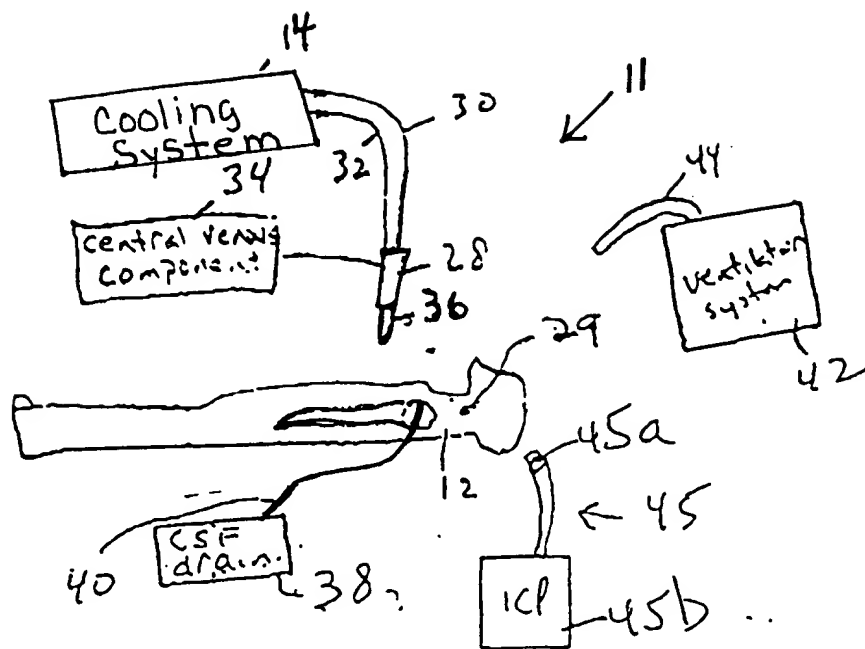 14
11
cooling
system
30
32
44
34
central venous
component
28
36
ventilation
system
42
29
45a
12
45
40
CSF
drain
38
ICP
45b